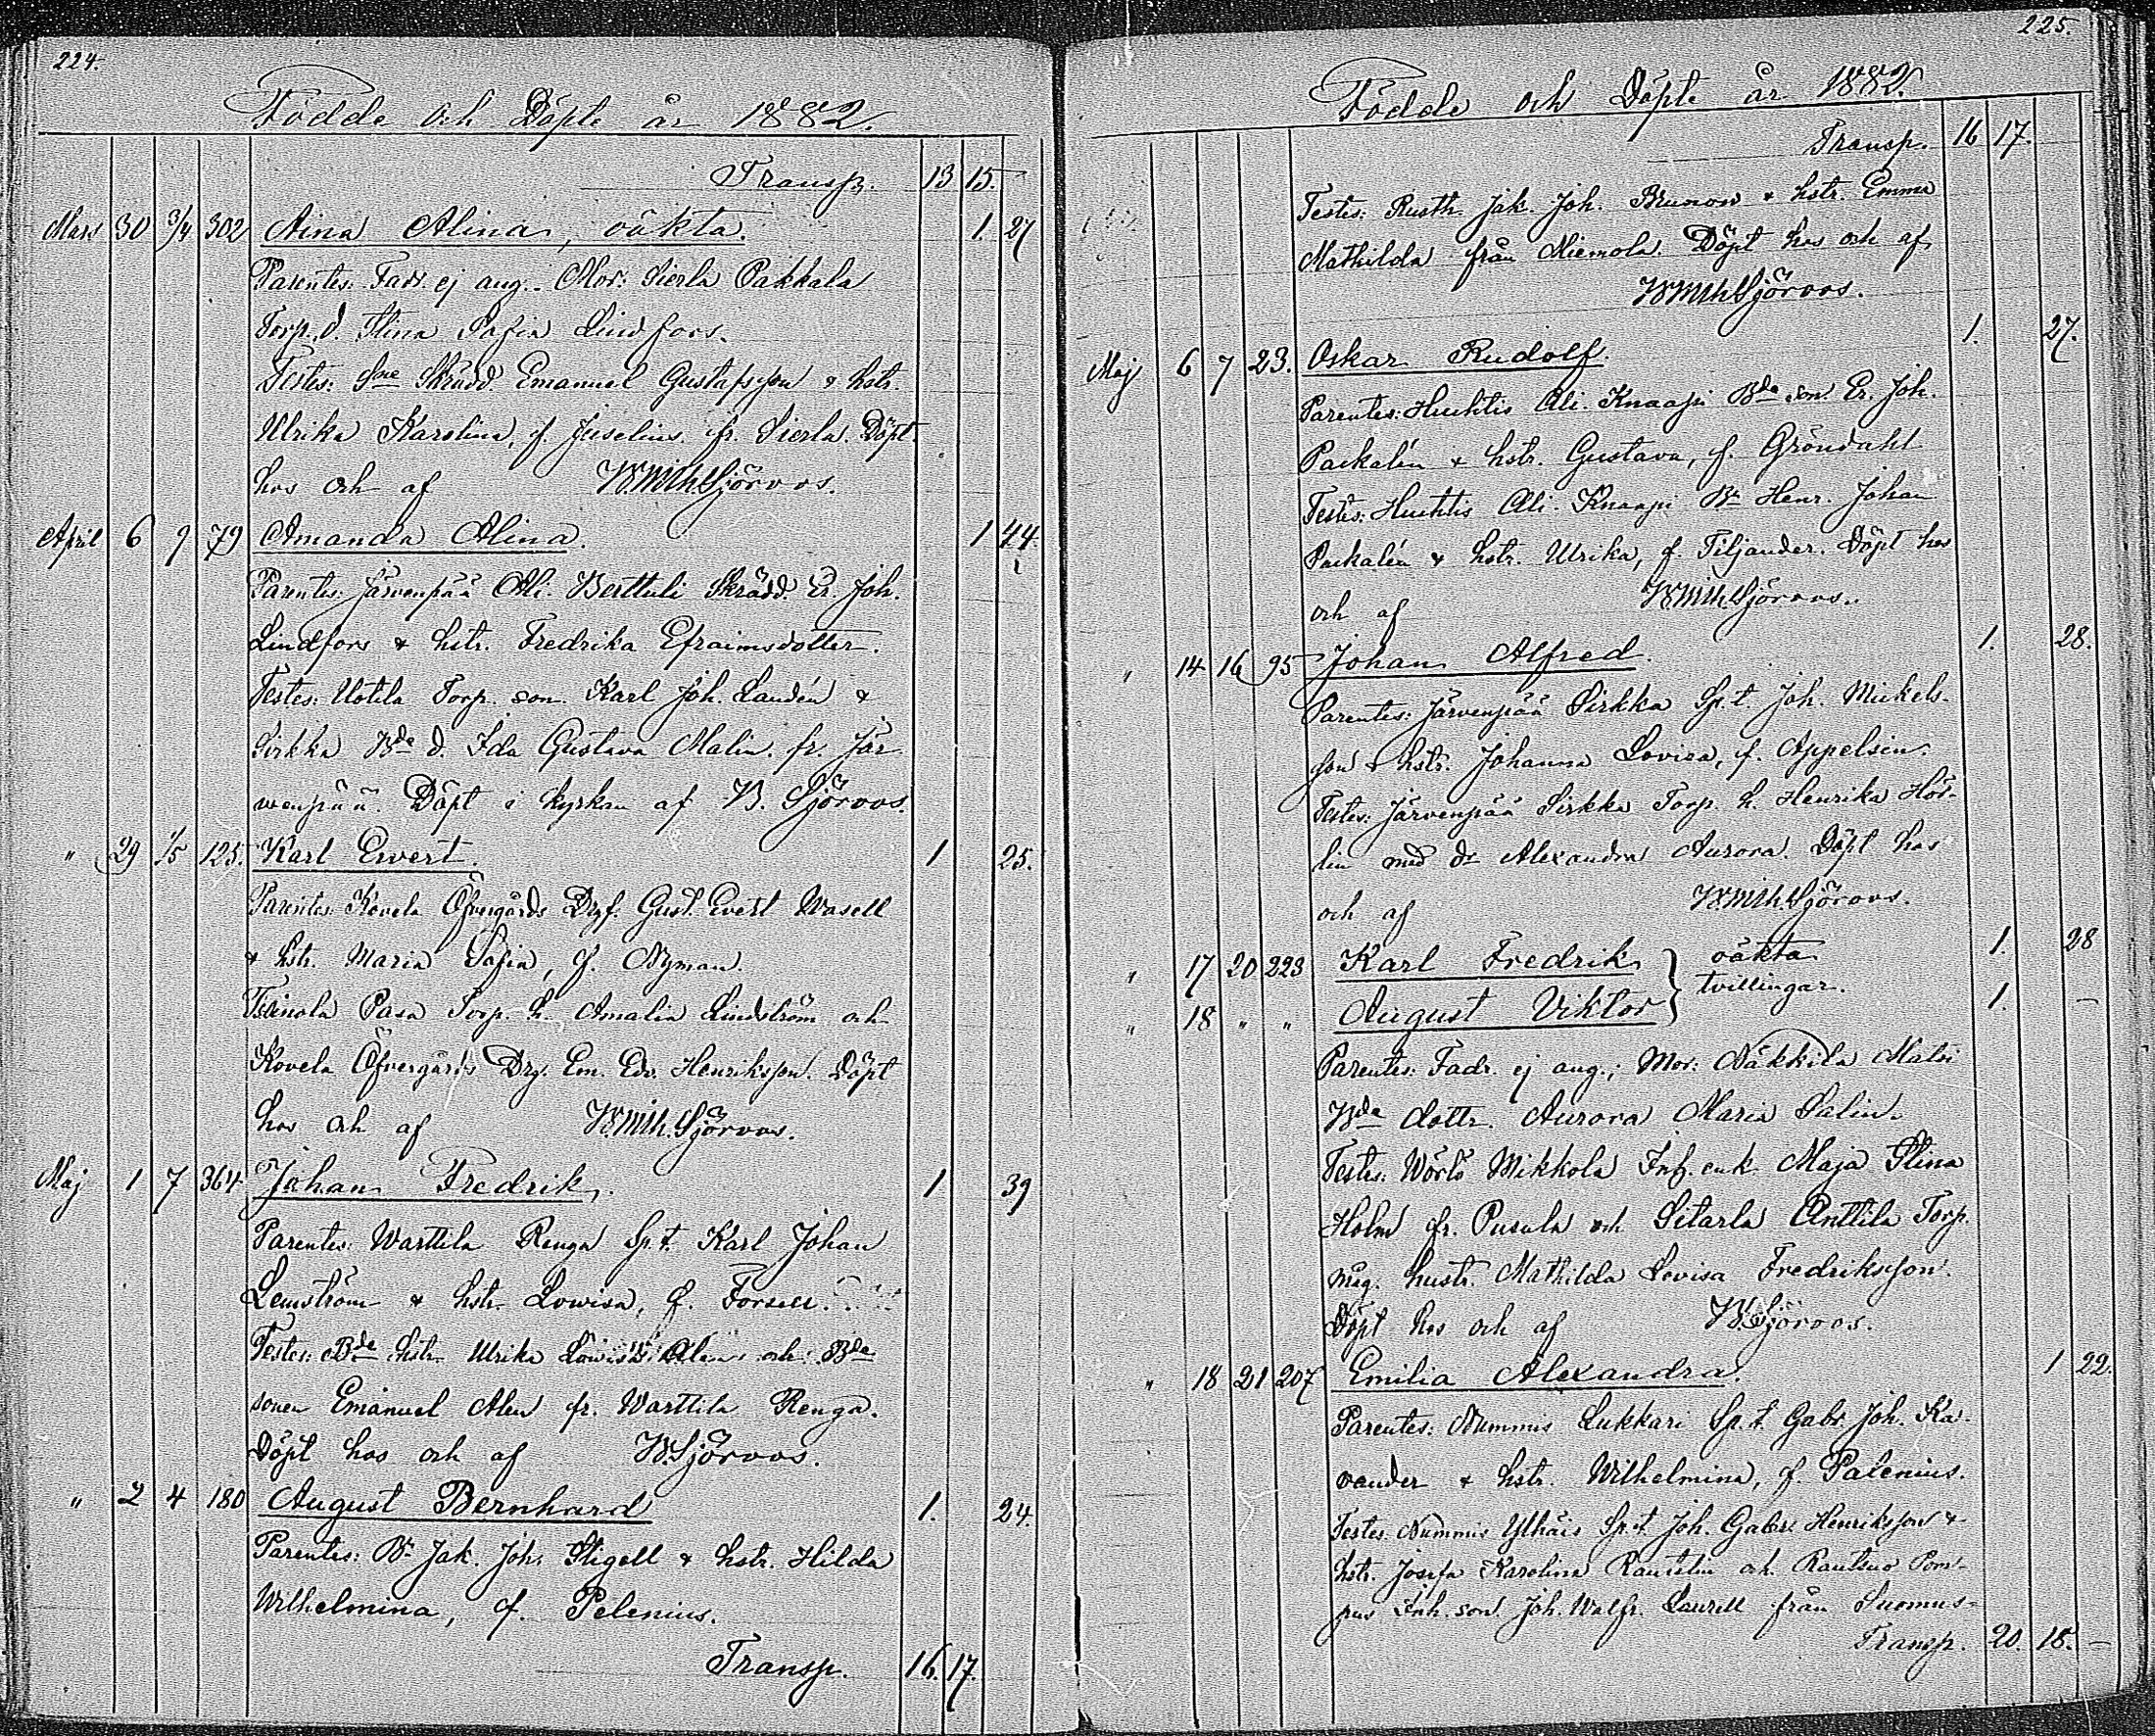 224.
Födde och Döpte år 1882.
Transp. 13 15.
Mars 30 3/4 302 Aina Alina, oäkta. 1. 27
Parentes: Fadr. ej ang. Mor: Sierla Pakkala
Torp. d. Stina Sofia Lindfors.
Testes: Sne Skrädd. Emanuel Gustafsson & hstr.
Ulrika Karolina, f. Juselius fr. Sierla. Döpt
hos och af W.Sjöroos.
April 6 9 79 Amanda Alina. 1 44.
Parentes: Järvenpää Ali. Berttuli Skrädd. Er. Joh.
Lindfors & hstr. Fredrika Efraimsdotter.
Testes: Uotila Torp. son. Karl Joh. Landén &
Sirkka Bde d. Ida Gustava Malin. fr. Jär-
wenpää. Döpt i kyrkan af W. Sjöroos.
" 29 1/5 125. Karl Evert. 1 25.
Parentes: Kovela Öfvergårds Drgf. Gust. Evert Wasell
& hstr. Maria Sofia, f. Nyman.
Pasa Torp. h. Amalia Lindström och
Kovela Öfvergårds Drg. Em. Edv. Henriksson. Döpt
hos och af W.Sjöroos.
Maj 1 7 364. Johan Fredrik. 1 39
Parentes: Warttila Renga Sp.t. Karl Johan
Lemström & hstr. Lowisa, f. Forsell.
Testes: Bde hstr. Ulrika Lowisa Alen och Bde
sonen Emanuel Alen fr. Warttila Renga.
Döpt hos och af W.Sjöroos.
" 2 4 180 August Bernhard 1. 24.
Parentes: Bn Jak. Joh. Stigell & hstr. Hilda
Wilhelmina, f. Pelenius.
Transp. 16. 17.
225.
Födde och Döpte år 1882.
Transp. 16 17.
Testes: Rusth. Jak. Joh. Brunow & hstr. Emma
Mathilda från Niemola. Döpt hos och af
W.Sjöroos.
Maj 6 7 23. Oskar Rudolf. 1. 27.
Parentes: Huhtis Ali. Knaapi Bde son. Er. Joh.
Packalén & hstr. Gustava, f. Gröndahl
Testes: Huhtis Ali. Knaapi Bn Henr. Johan
Packalén & hstr. Ulrika, f. Tiljander. Döpt hos
och af W.Sjöroos.
" 14 16 95 Johan Alfred. 1. 28.
Parentes: Järvenpää Sirkka Sp.t. Joh. Mickels-
son & hstr. Johanna Lovisa, f. Appelsin.
Testes: Järvenpää Sirkka Torp. h. Henrika Hör-
lin med dr Alexandra Aurora. Döpt hos
och af W.Sjöroos.
" 17 20 223 Karl Fredrik } oäkta 1. 28
" 18 " " August Viktor } tvillingar. 1. —
Parentes: Fadr. ej ang.; Mor: Näkkila Matvi
Bde dottr. Aurora Maria Salin.
Testes: Wörlö Mikkola Inh. enk. Maja Stina
Holm fr. Pusula och Sitarla Anttila Torp.
måg. hustr. Mathilda Lovisa Fredriksson.
Döpt hos och af W.Sjöroos.
" 18 21 207 Emilia Alexandra. 1 22.
Parentes: Nummis Lukkari Sp.t. Gabr. Joh. Ka-
vander & hstr. Wilhelmina, f. Palenius.
Testes: Nummis Ylhäis Sp.t. Joh. Gabr. Henriksson &
hstr. Josefa Karolina och Rautsuo Pom-
pus Inh. son. Joh. Walfr. Laurell från Suomus-
Transp. 20. 18. —